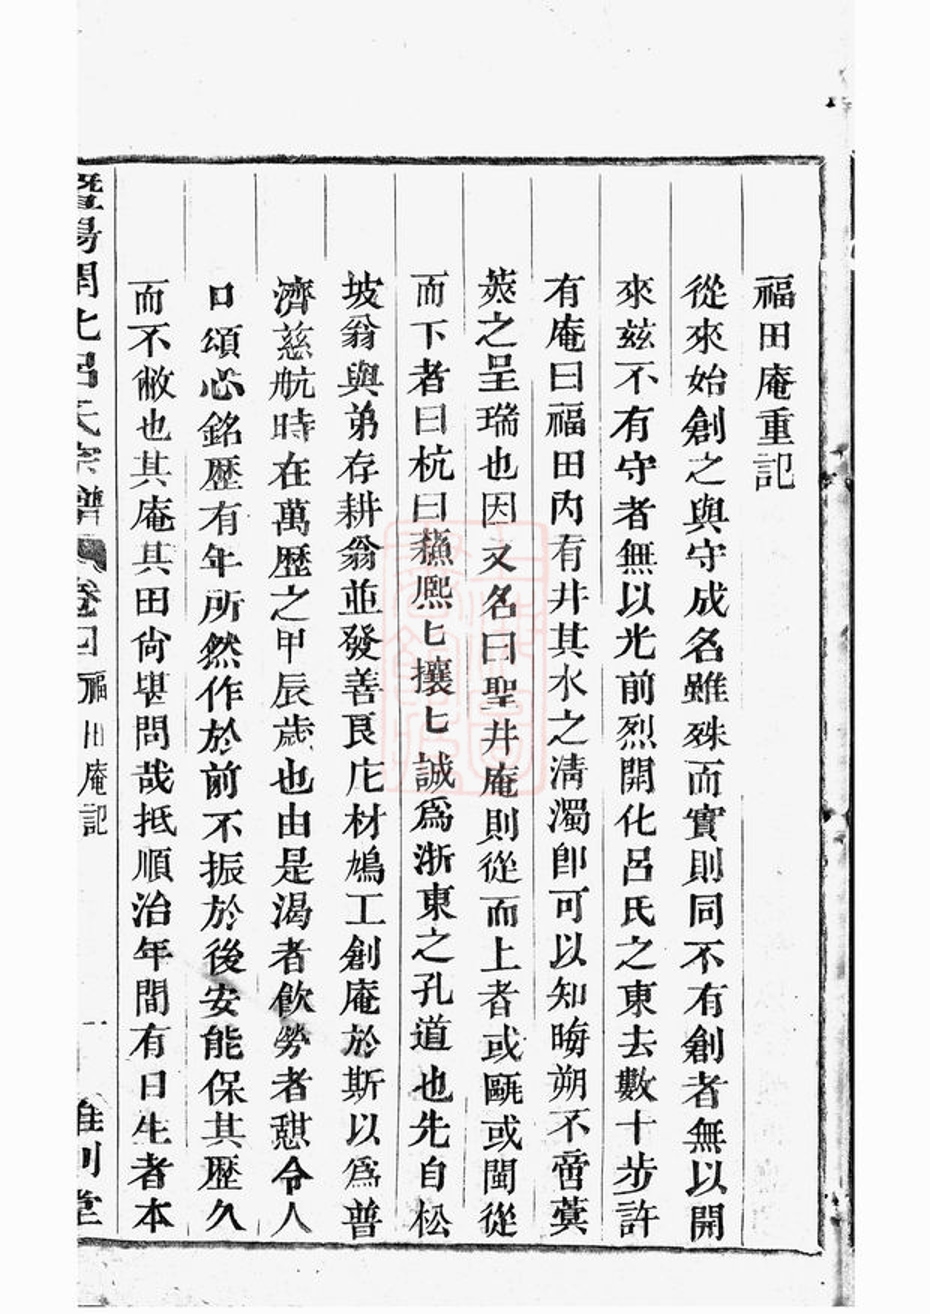 福田庵重記
從來始創之與守成名雖殊而實則同不有創者無以開
來兹不有守者無以光前烈開化呂氏之東去數十步許
有庵曰福田內有井其水之淸濁卽可以知晦朔不啻蓂
莢之呈瑞也因又名曰聖井庵則從而上者或甌或閩從
而下者曰杭曰蘓熈匕攘匕誠爲浙東之孔道也先自松
坡翁與弟存耕翁並發善艮庀材鳩工創庵於斯以爲普
濟慈航時在萬歷之甲辰歲也由是渴者飮勞者憇令人
口頌心銘歷有年所然作於前不振於後安能保其歷久
而不敝也其庵其田尙堪問哉抵順治年間有日生者本
暨陽開化呂氏宗譜 卷四 福田庵記 一